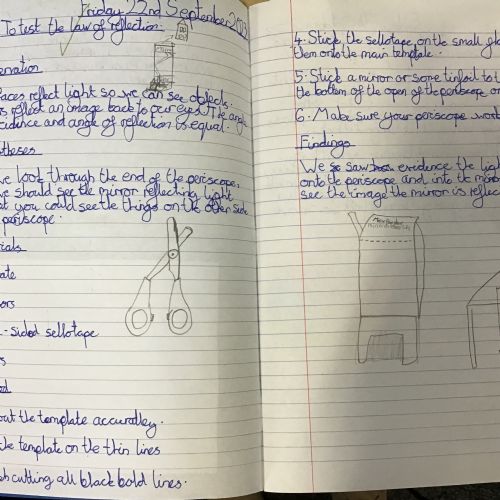 Friday 22nd September
To test the law of reflection.
ervation
faces reflect light so we can see objects.
reflect an image back to our eyes. The angle
cidence and angle of reflection is equal.
theses
we look through the end of the periscope,
we should see the mirror reflecting light
at you could see the things on the other side
periscope.
rials
ate
ors
-sided sellotape
s
od
out the template accurately.
the template on the thin lines
cutting all black bold lines.
4. Stick the sellotape on the small gl
them onto the main template.
5. Stick a mirror or some tinfoil to t
the bottom of the open of the periscope or
6. Make sure your periscope work
Findings
We saw evidence the ligh
onto the periscope and into the mirro
see the image the mirror is reflec